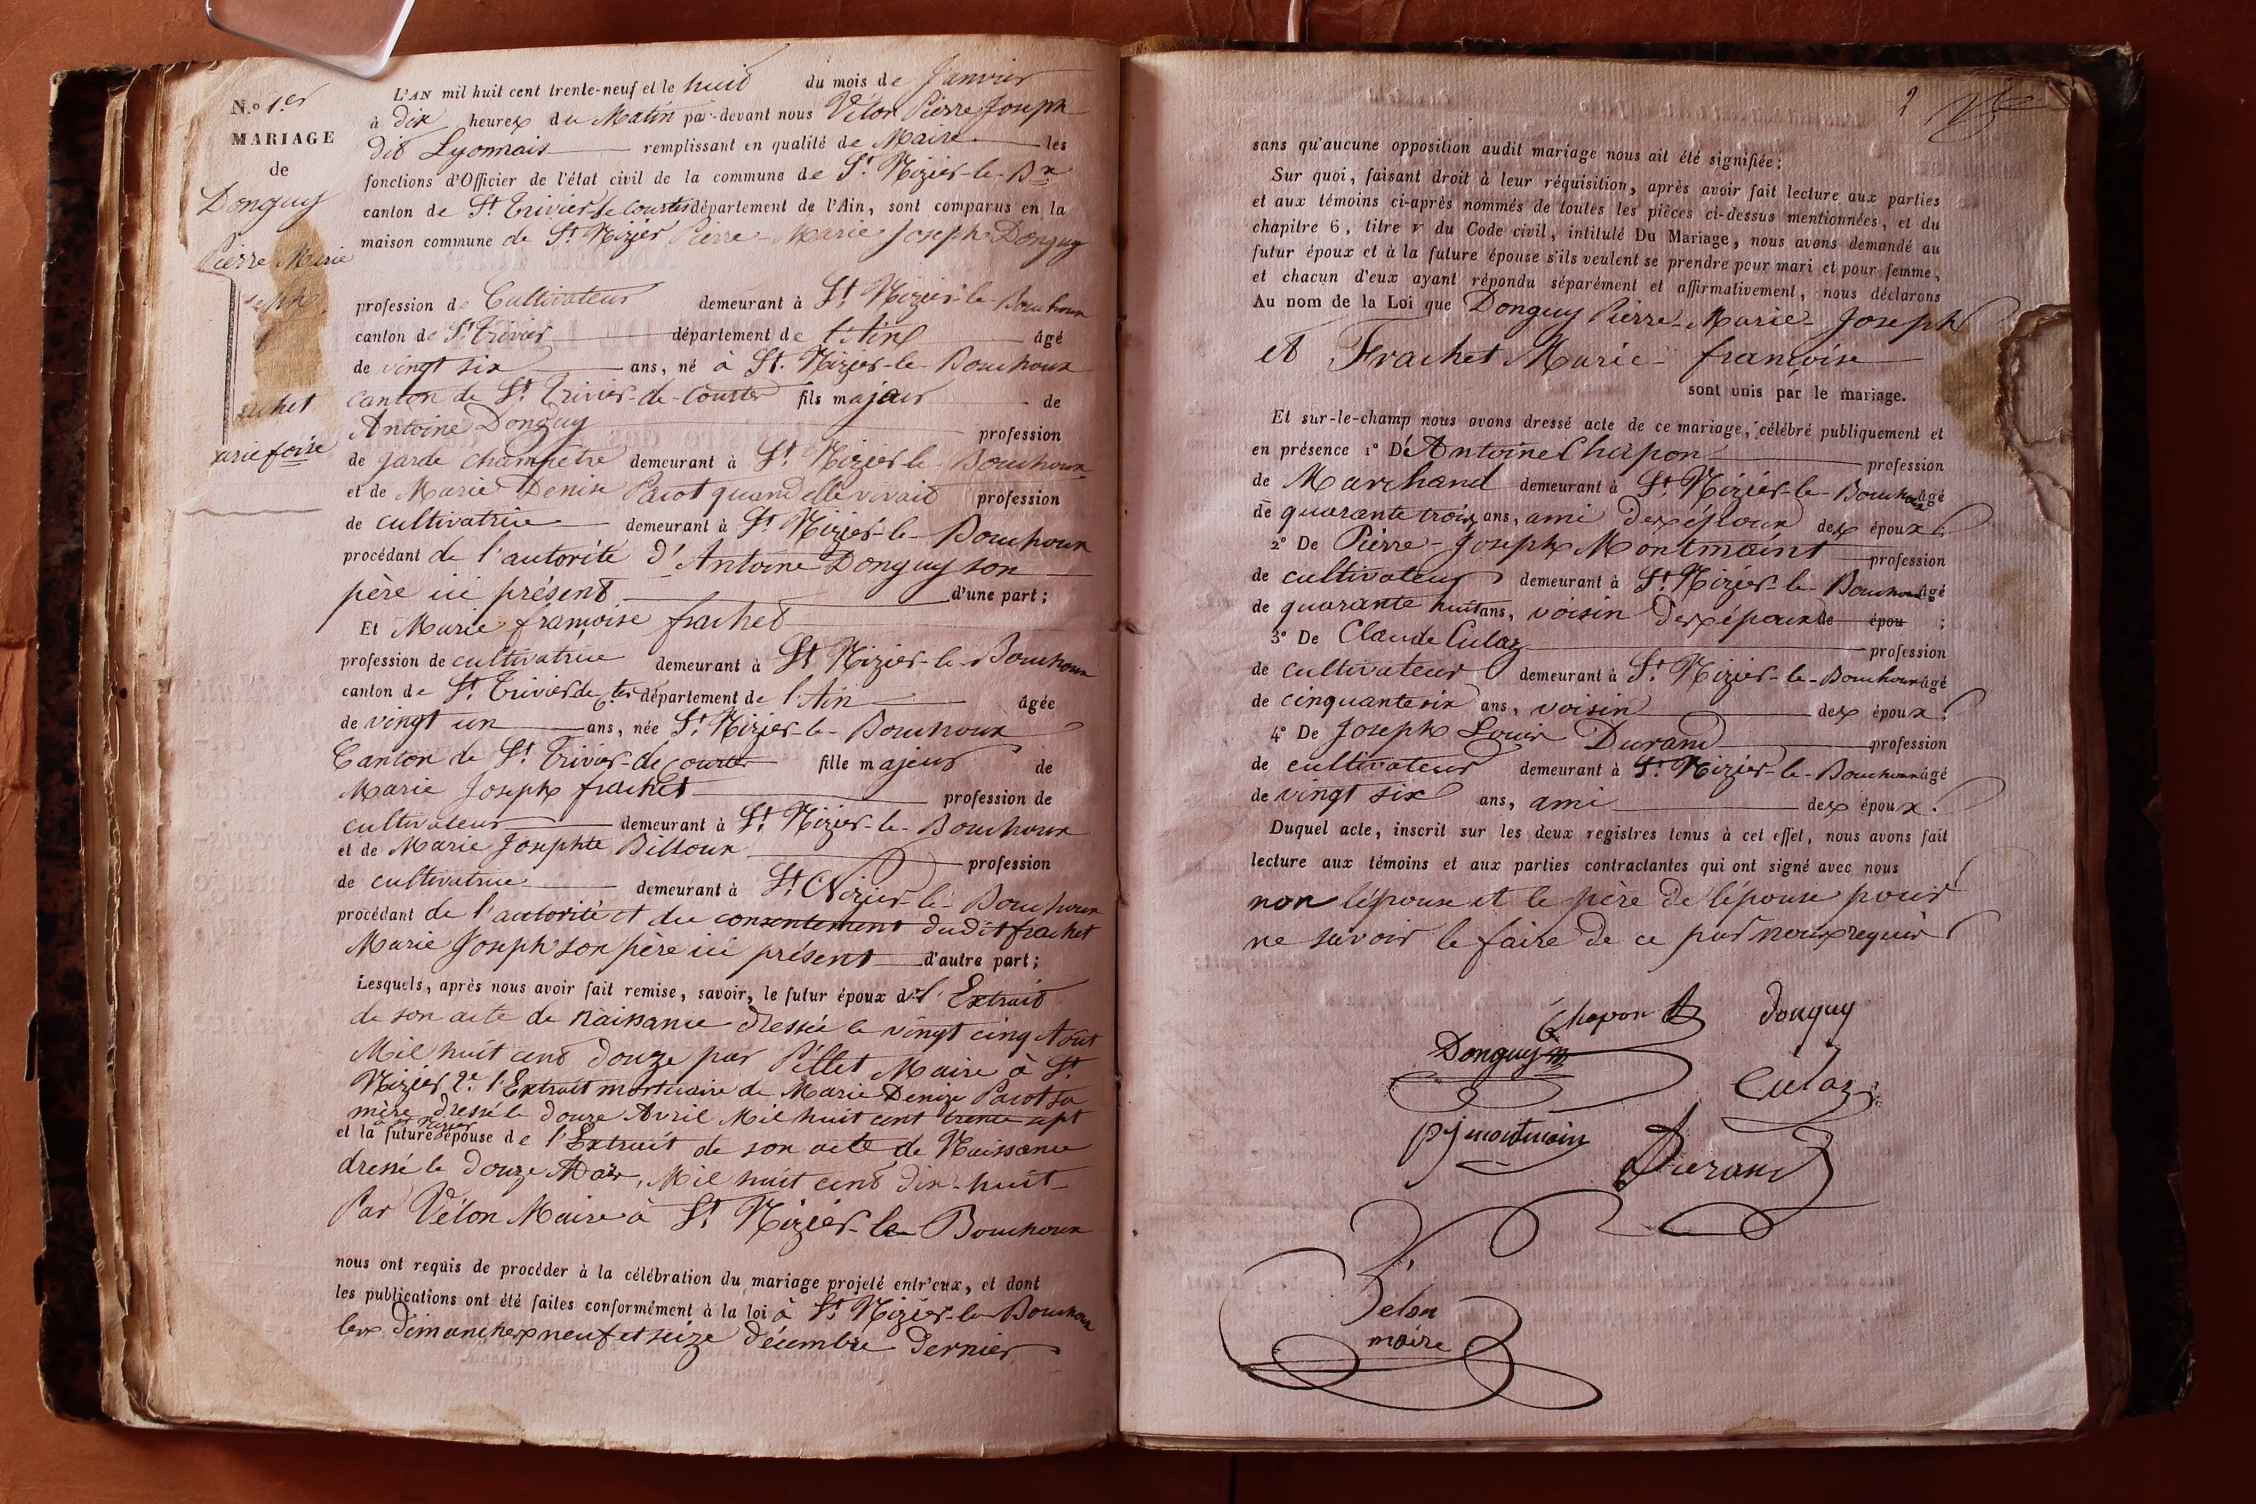 N.° 1.er
MARIAGE
de
Donguy
Pierre Marie
seph
achet
arie foise
L'AN mil huit cent trente-neuf et le huit du mois de Janvier
à dix heures du Matin par-devant nous Vélon Pierre Joseph
dit Lyonnais remplissant en qualité de Maire les
fonctions d'Officier de l'état civil de la commune de St. Nizier-le-Bx
canton de St Trivier de Courtes département de l'Ain, sont comparus en la
maison commune de St. Nizier Pierre-Marie Joseph Donguy
profession de Cultivateur demeurant à St Nizier-le-Bouchoux
canton de St Trivier département de l'Ain âgé
de vingt six ans, né à St. Nizier-le-Bouchoux
canton de St Trivier-de-Courtes fils majeur de
Antoine Donguy profession
de garde champêtre demeurant à St Nizier le-Bouchoux
et de Marie Denise Pacot quand elle vivait profession
de cultivatrice demeurant à St Nizier-le-Bouchoux
procédant de l'autorité d'Antoine Donguy son
père ici présent d'une part;
Et Marie françoise frachet
profession de cultivatrice demeurant à St Nizier-le-Bouchoux
canton de St. Trivier de C.tes département de l'Ain âgée
de vingt un ans, née St. Nizier-le-Bouchoux
Canton de St Trivier-de Courtes fille majeur de
Marie Joseph frachet profession de
cultivateur demeurant à St. Nizier-le-Bouchoux
et de Marie Josephte Billoux profession
de cultivatrice demeurant à St. Nizier-le-Bouchoux
procédant de l'autorité et du consentement dudit frachet
Marie Joseph son père ici présent d'autre part;
Lesquels, après nous avoir fait remise, savoir, le futur époux de l'Extrait
de son acte de naissance dressée le vingt cinq Aout
Mil huit cent douze par Pillet Maire à St
Nizier 2.e l'Extrait mortuaire de Marie Denize Pacot sa
mère dressé le douze Avril Mil huit cent trente sept
à St Nizier
et la future épouse de l'Extrait de son acte de Naissance
dressé le douze Mars, Mil huit cent dix-huit
Par Vélon Maire à St Nizier-le-Bouchoux
nous ont requis de procéder à la célébration du mariage projeté entr'eux, et dont
les publications ont été faites conformément à la loi à St Nizier-le-Bouchoux
les dimanches neuf et seize décembre dernier
2
sans qu'aucune opposition audit mariage nous ait été signifiée;
Sur quoi, faisant droit à leur réquisition, après avoir fait lecture aux parties
et aux témoins ci-après nommés de toutes les pièces ci-dessus mentionnées, et du
chapitre 6, titre V du Code civil, intitulé Du Mariage, nous avons demandé au
futur époux et à la future épouse s'ils veulent se prendre pour mari et pour femme,
et chacun d'eux ayant répondu séparément et affirmativement, nous déclarons
Au nom de la Loi que Donguy Pierre-Marie-Joseph
et Frachet Marie-françoise
sont unis par le mariage.
Et sur-le-champ nous avons dressé acte de ce mariage, célébré publiquement et
en présence 1° D'Antoine Chapon profession
de Marchand demeurant à St. Nizier-le-Bouchoux âgé
de quarante trois ans, ami des époux des époux;
2° De Pierre-Joseph Montmaint profession
de cultivateur demeurant à St. Nizier-le-Bouchoux âgé
de quarante huit ans, voisin des époux de épou ;
3° De Claude Culaz profession
de cultivateur demeurant à St. Nizier-le-Bouchoux âgé
de cinquante six ans, voisin des époux;
4° De Joseph Louis Durand profession
de cultivateur demeurant à St. Nizier-le-Bouchoux âgé
de vingt six ans, ami des époux.
Duquel acte, inscrit sur les deux registres tenus à cet effet, nous avons fait
lecture aux témoins et aux parties contractantes qui ont signé avec nous
non l'épouse et le père de l'épouse pour
ne savoir le faire de ce par nous requis
Chapon
donguy
Donguy
Culaz
pj montmain
Durand
Velon
maire